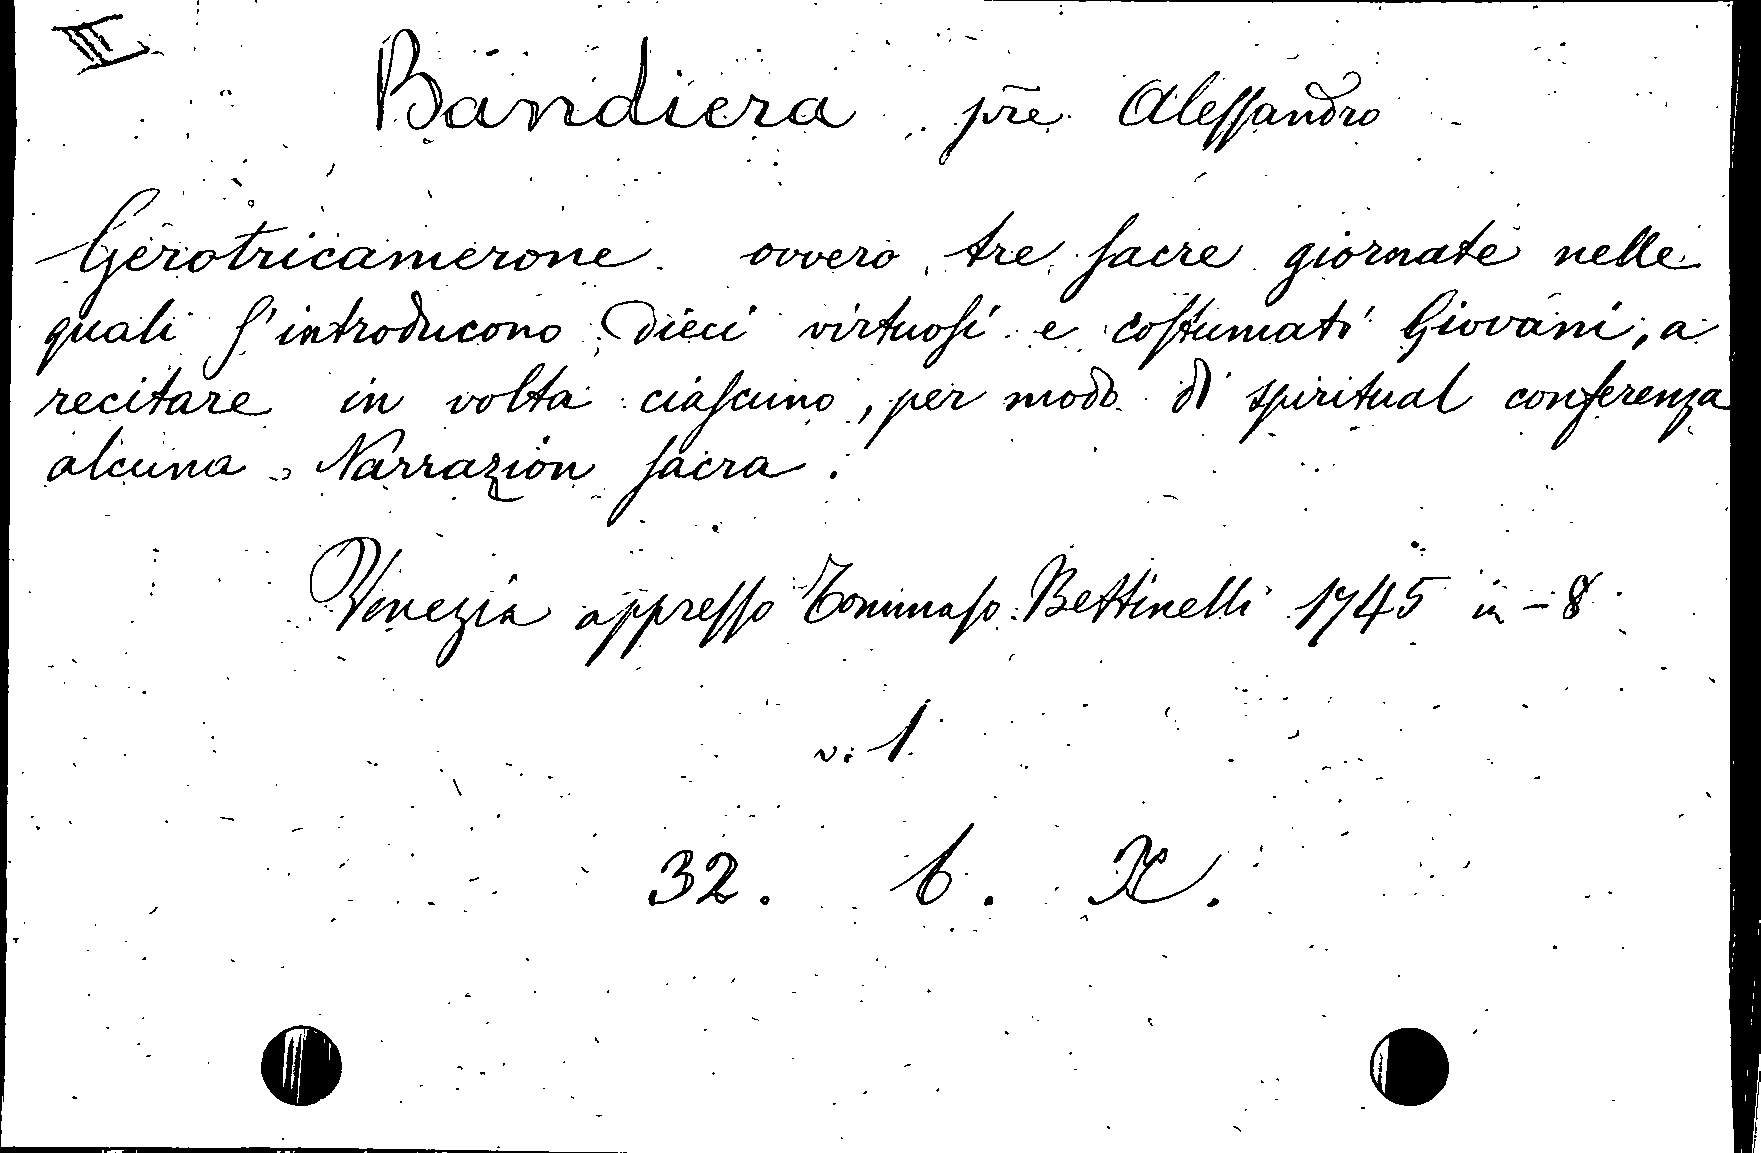 III
Bandiera pre Alessandro
Gerotricamerone ovvero tre sacre giornate nelle
quali s'introducono dieci virtuosi e costumati Giovani, a
recitare in volta ciascuno, per modo di spiritual conferenza
alcuna Narrazion sacra.
Venezia appresso Tommaso Bettinelli 1745 in-8
v. 1
32. b. X.